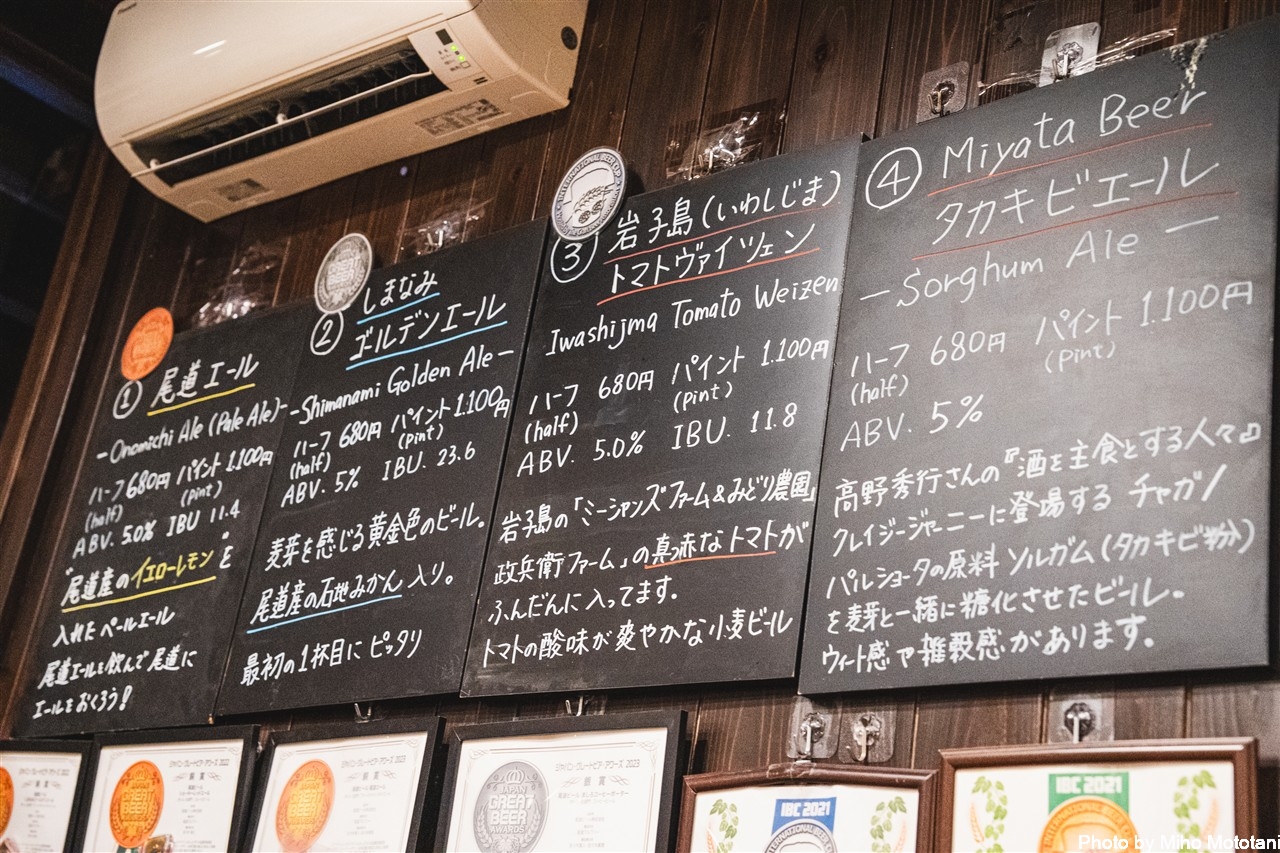 ①
尾道エール
-Onomichi Ale (Pale Ale)-
ハーフ 680円 パイント 1.100円
(half) (pint)
ABV. 5.0% IBU 11.4
尾道産のイエローレモンを
入れたペールエール
尾道エールを飲んで尾道に
エールをおくろう!
②
しまなみ
ゴールデンエール
-Shimanami Golden Ale-
ハーフ 680円 パイント 1.100円
(half) (pint)
ABV. 5% IBU. 23.6
麦芽を感じる黄金色のビール。
尾道産の石地みかん入り。
最初の1杯目にピッタリ
INTERNATIONAL BEER CUP
③
岩子島(いわしじま)
トマトヴァイツェン
Iwashijma Tomato Weizen
ハーフ 680円 パイント 1.100円
(half) (pint)
ABV. 5.0% IBU. 11.8
岩子島の「ミーシャンズファーム&みどり農園」
政兵衛ファーム」の真っ赤なトマトが
ふんだんに入ってます。
トマトの酸味が爽やかな小麦ビール
④
Miyata Beer
タカキビエール
— Sorghum Ale —
ハーフ 680円 パイント 1.100円
(half) (pint)
ABV. 5%
高野秀行さんの『酒を主食とする人々』
クレイジージャーニーに登場する チャガ/
パルショータの原料 ソルガム(タカキビ粉)
を麦芽と一緒に糖化させたビール。
ウィート感や雑穀感があります。
ジャパン・グレートビア・アワーズ 2022
ジャパン・グレートビア・アワーズ 2023
銀賞
JAPAN
GREAT
BEER
AWARDS
IBC 2021
INTERNATIONAL BEER CUP
IBC 2021
Photo by Miho Mototani